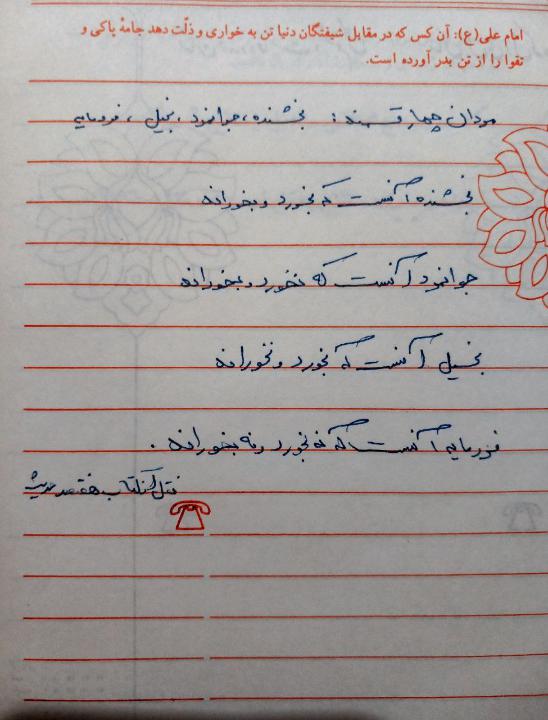 امام علی(ع): آن کس که در مقابل شیفتگان دنیا تن به خواری و ذلّت دهد جامهٔ پاکی و
تقوا را از تن بدر آورده است.
مردان چهار قسمند: بخشنده، جوانمرد، بخیل، فرومایه
بخشنده آنست که بخورد و بخوراند
جوانمرد آنست که نخورد و بخوراند
بخیل آنست که بخورد و نخوراند
فرومایه آنست که نه بخورد و نه بخوراند.
نقل از کتاب هفتصد حدیث